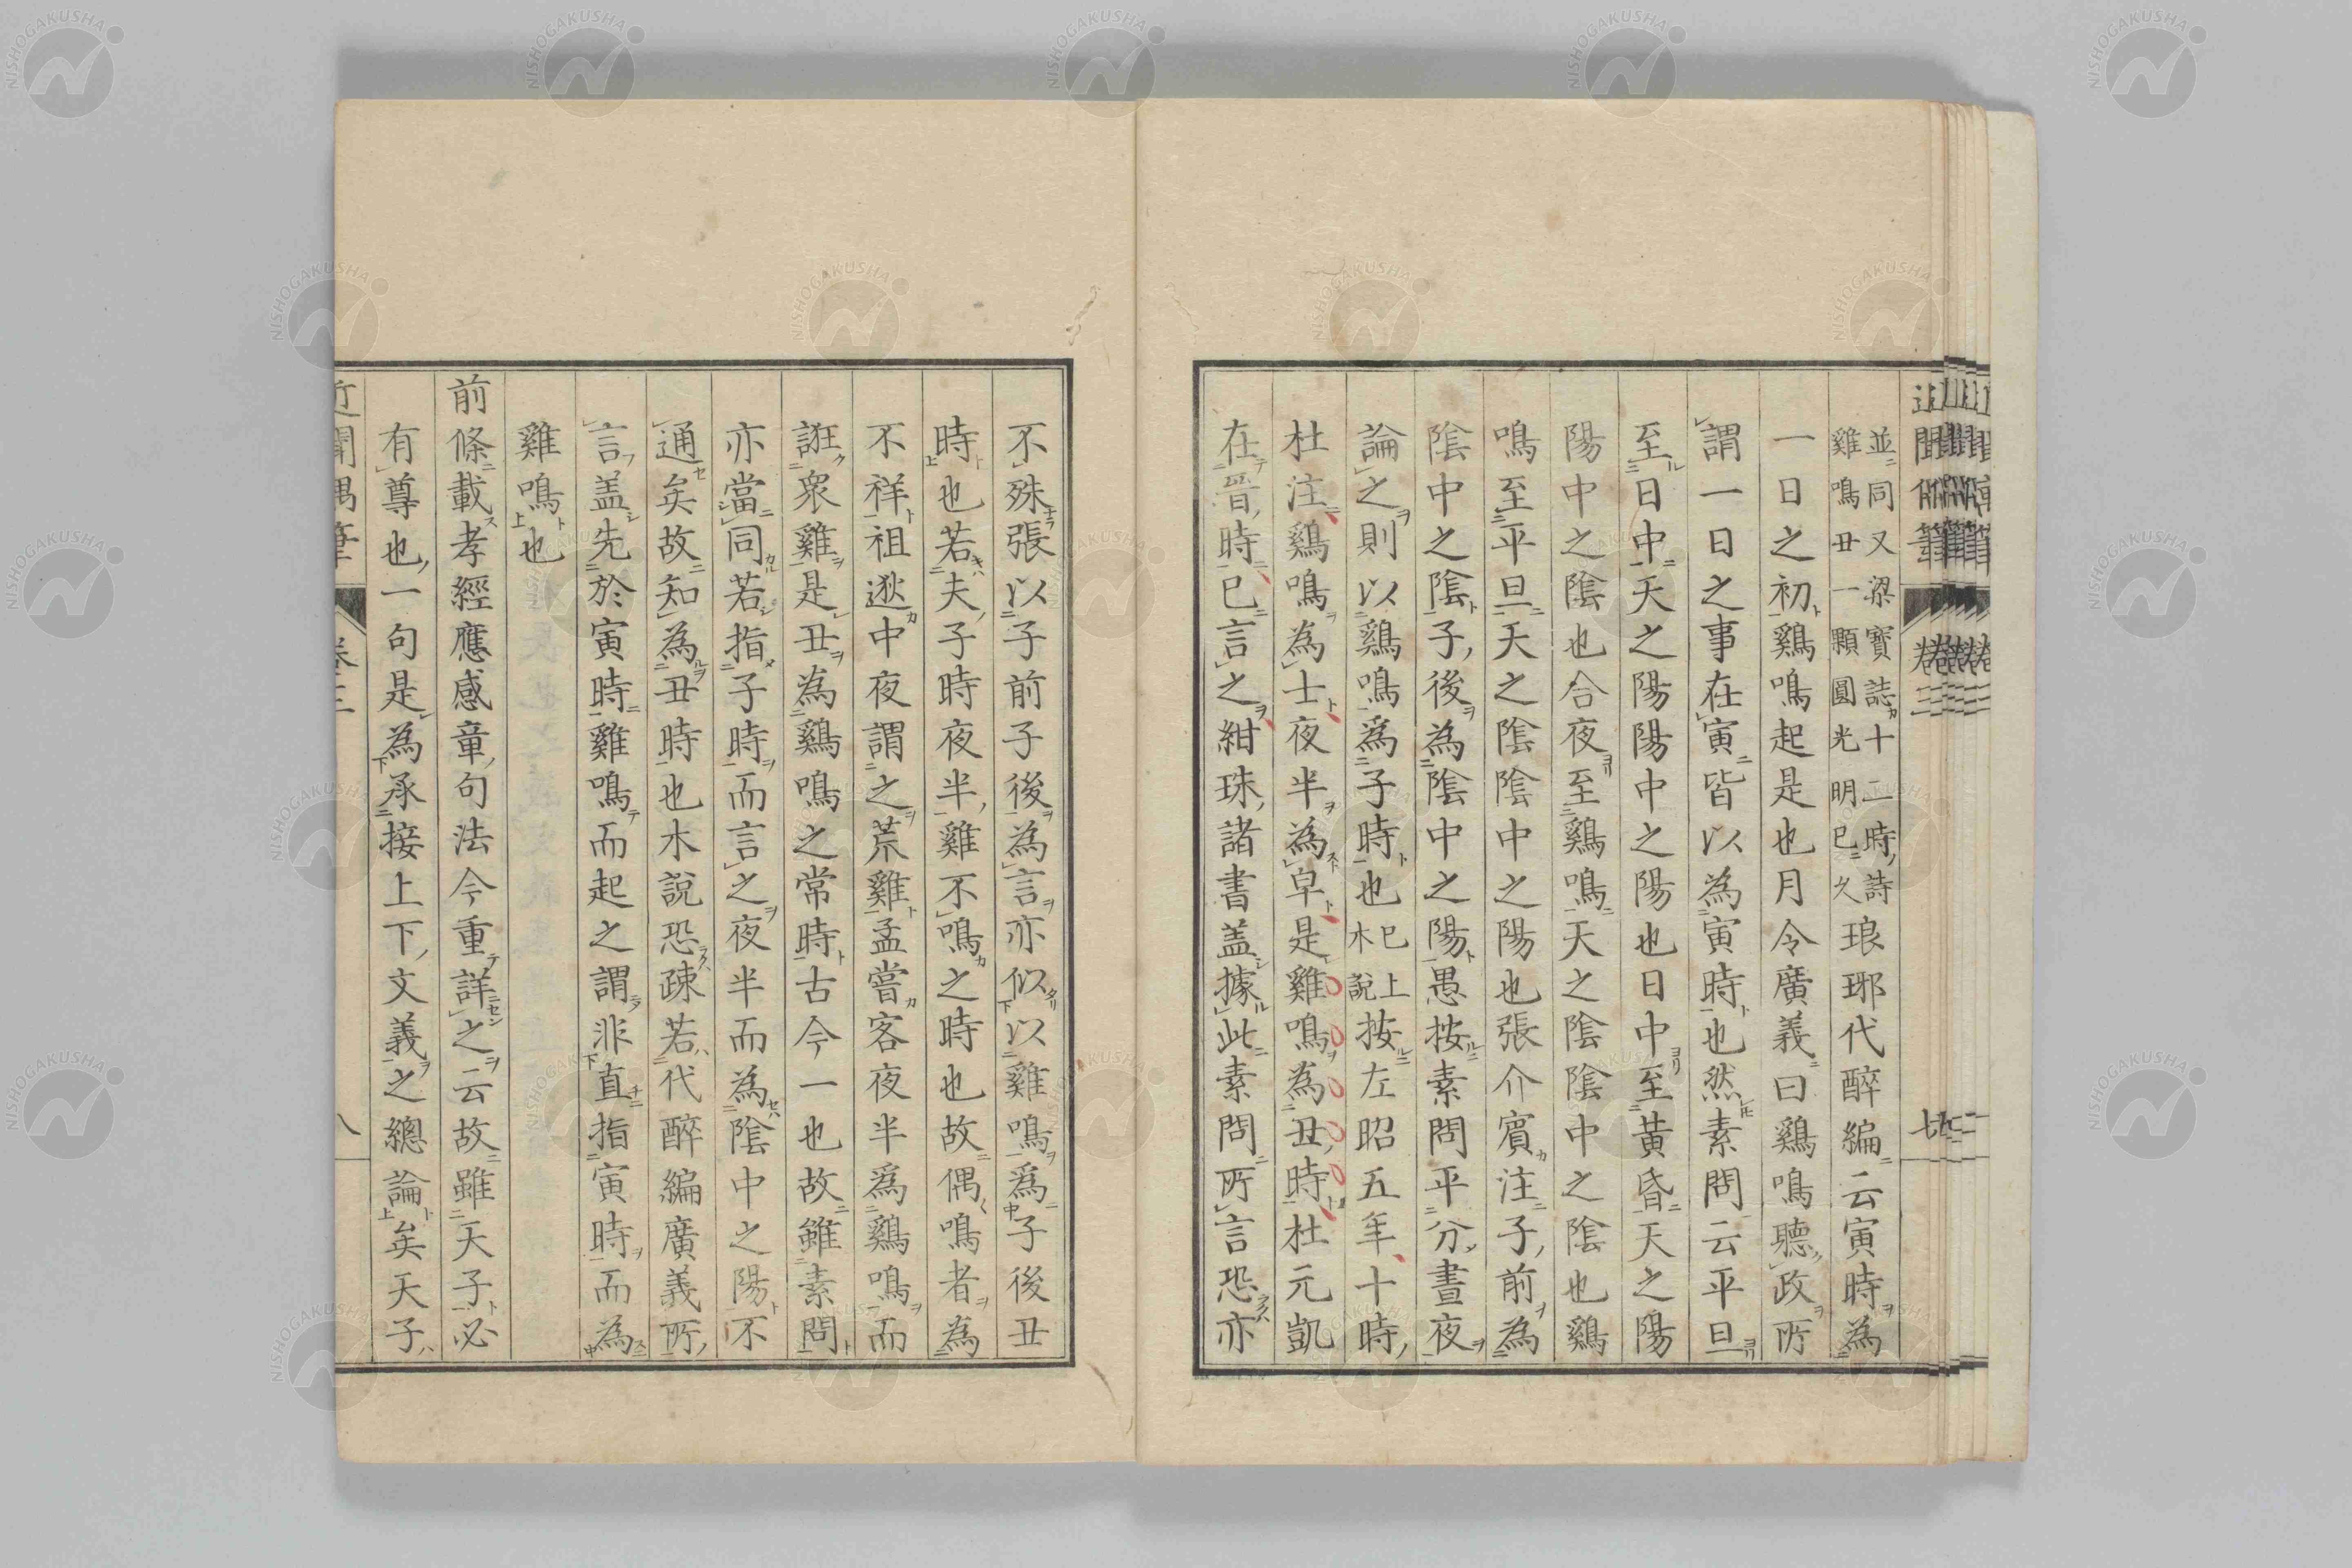 並同又梁寶誌十二時詩
雞鳴丑一顆圓光明已久
琅琊代醉編云寅時為
一日之初鷄鳴起是也月令廣義曰鷄鳴聽政所
謂一日之事在寅皆以為寅時也然素問云平旦
至日中天之陽陽中之陽也日中至黃昏天之陽
陽中之陰也合夜至鷄鳴天之陰陰中之陰也鷄
鳴至平旦天之陰陰中之陽也張介賓注子前為
陰中之陰子後為陰中之陽愚按素問平分晝夜
論之則以鷄鳴爲子時也
已上
木說
按左昭五年十時
杜注鷄鳴為士夜半為皁是雞鳴為丑時杜元凱
在晉時已言之紺珠諸書盖據此素問所言恐亦
不殊張以子前子後為言亦似以雞鳴爲子後丑
時也若夫子時夜半雞不鳴之時也故偶鳴者為
不祥祖逖中夜謂之荒雞孟嘗客夜半爲鷄鳴而
誑衆雞是丑為鷄鳴之常時古今一也故雖素問
亦當同若指子時而言之夜半而為陰中之陽不
通矣故知為丑時也木說恐疎若代醉編廣義所
言盖先於寅時雞鳴而起之謂非直指寅時而為
雞鳴也
前條載孝經應感章句法今重詳之云故雖天子必
有尊也一句是為承接上下文義之總論矣天子
近聞寓筆
卷三
八